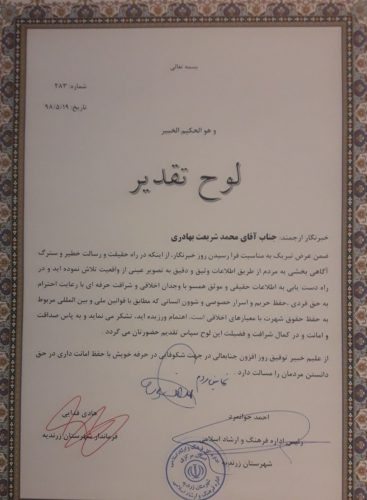 بسمه تعالی
شماره: ۲۸۳
تاریخ: ۹۸/۵/۱۹
و هو الحکیم الخبیر
لوح تقدیر
خبرنگار ارجمند: جناب آقای محمد شریعت بهادری
ضمن عرض تبریک به مناسبت فرا رسیدن روز خبرنگار، از اینکه در راه حقیقت و رسالت خطیر و سترگ
آگاهی بخشی به مردم از طریق اطلاعات وثیق و دقیق به تصویر عینی از واقعیت تلاش نموده اید و در
راه دست یابی به اطلاعات حقیقی و موثق همسو با وجدان اخلاقی و شرافت حرفه ای با رعایت احترام
به حق فردی ،حفظ حریم و اسرار خصوصی و شوون انسانی که مطابق با قوانین ملی و بین المللی مربوط
به حفظ حقوق شهرت با معیارهای اخلاقی است، اهتمام ورزیده اید، تشکر می نماید و به پاس صداقت
و امانت و در کمال شرافت و فضیلت این لوح سپاس تقدیم حضورتان می گردد .
از علیم خبیر توفیق روز افزون جنابعالی در جهت شکوفایی در حرفه خویش با حفظ امانت داری در حق
دانستن مردمان را مسالت دارد .
احمد جوانمرد
رئیس اداره فرهنگ و ارشاد اسلامی
شهرستان زرندیه
هادی فدایی
فرماندار شهرستان زرندیه